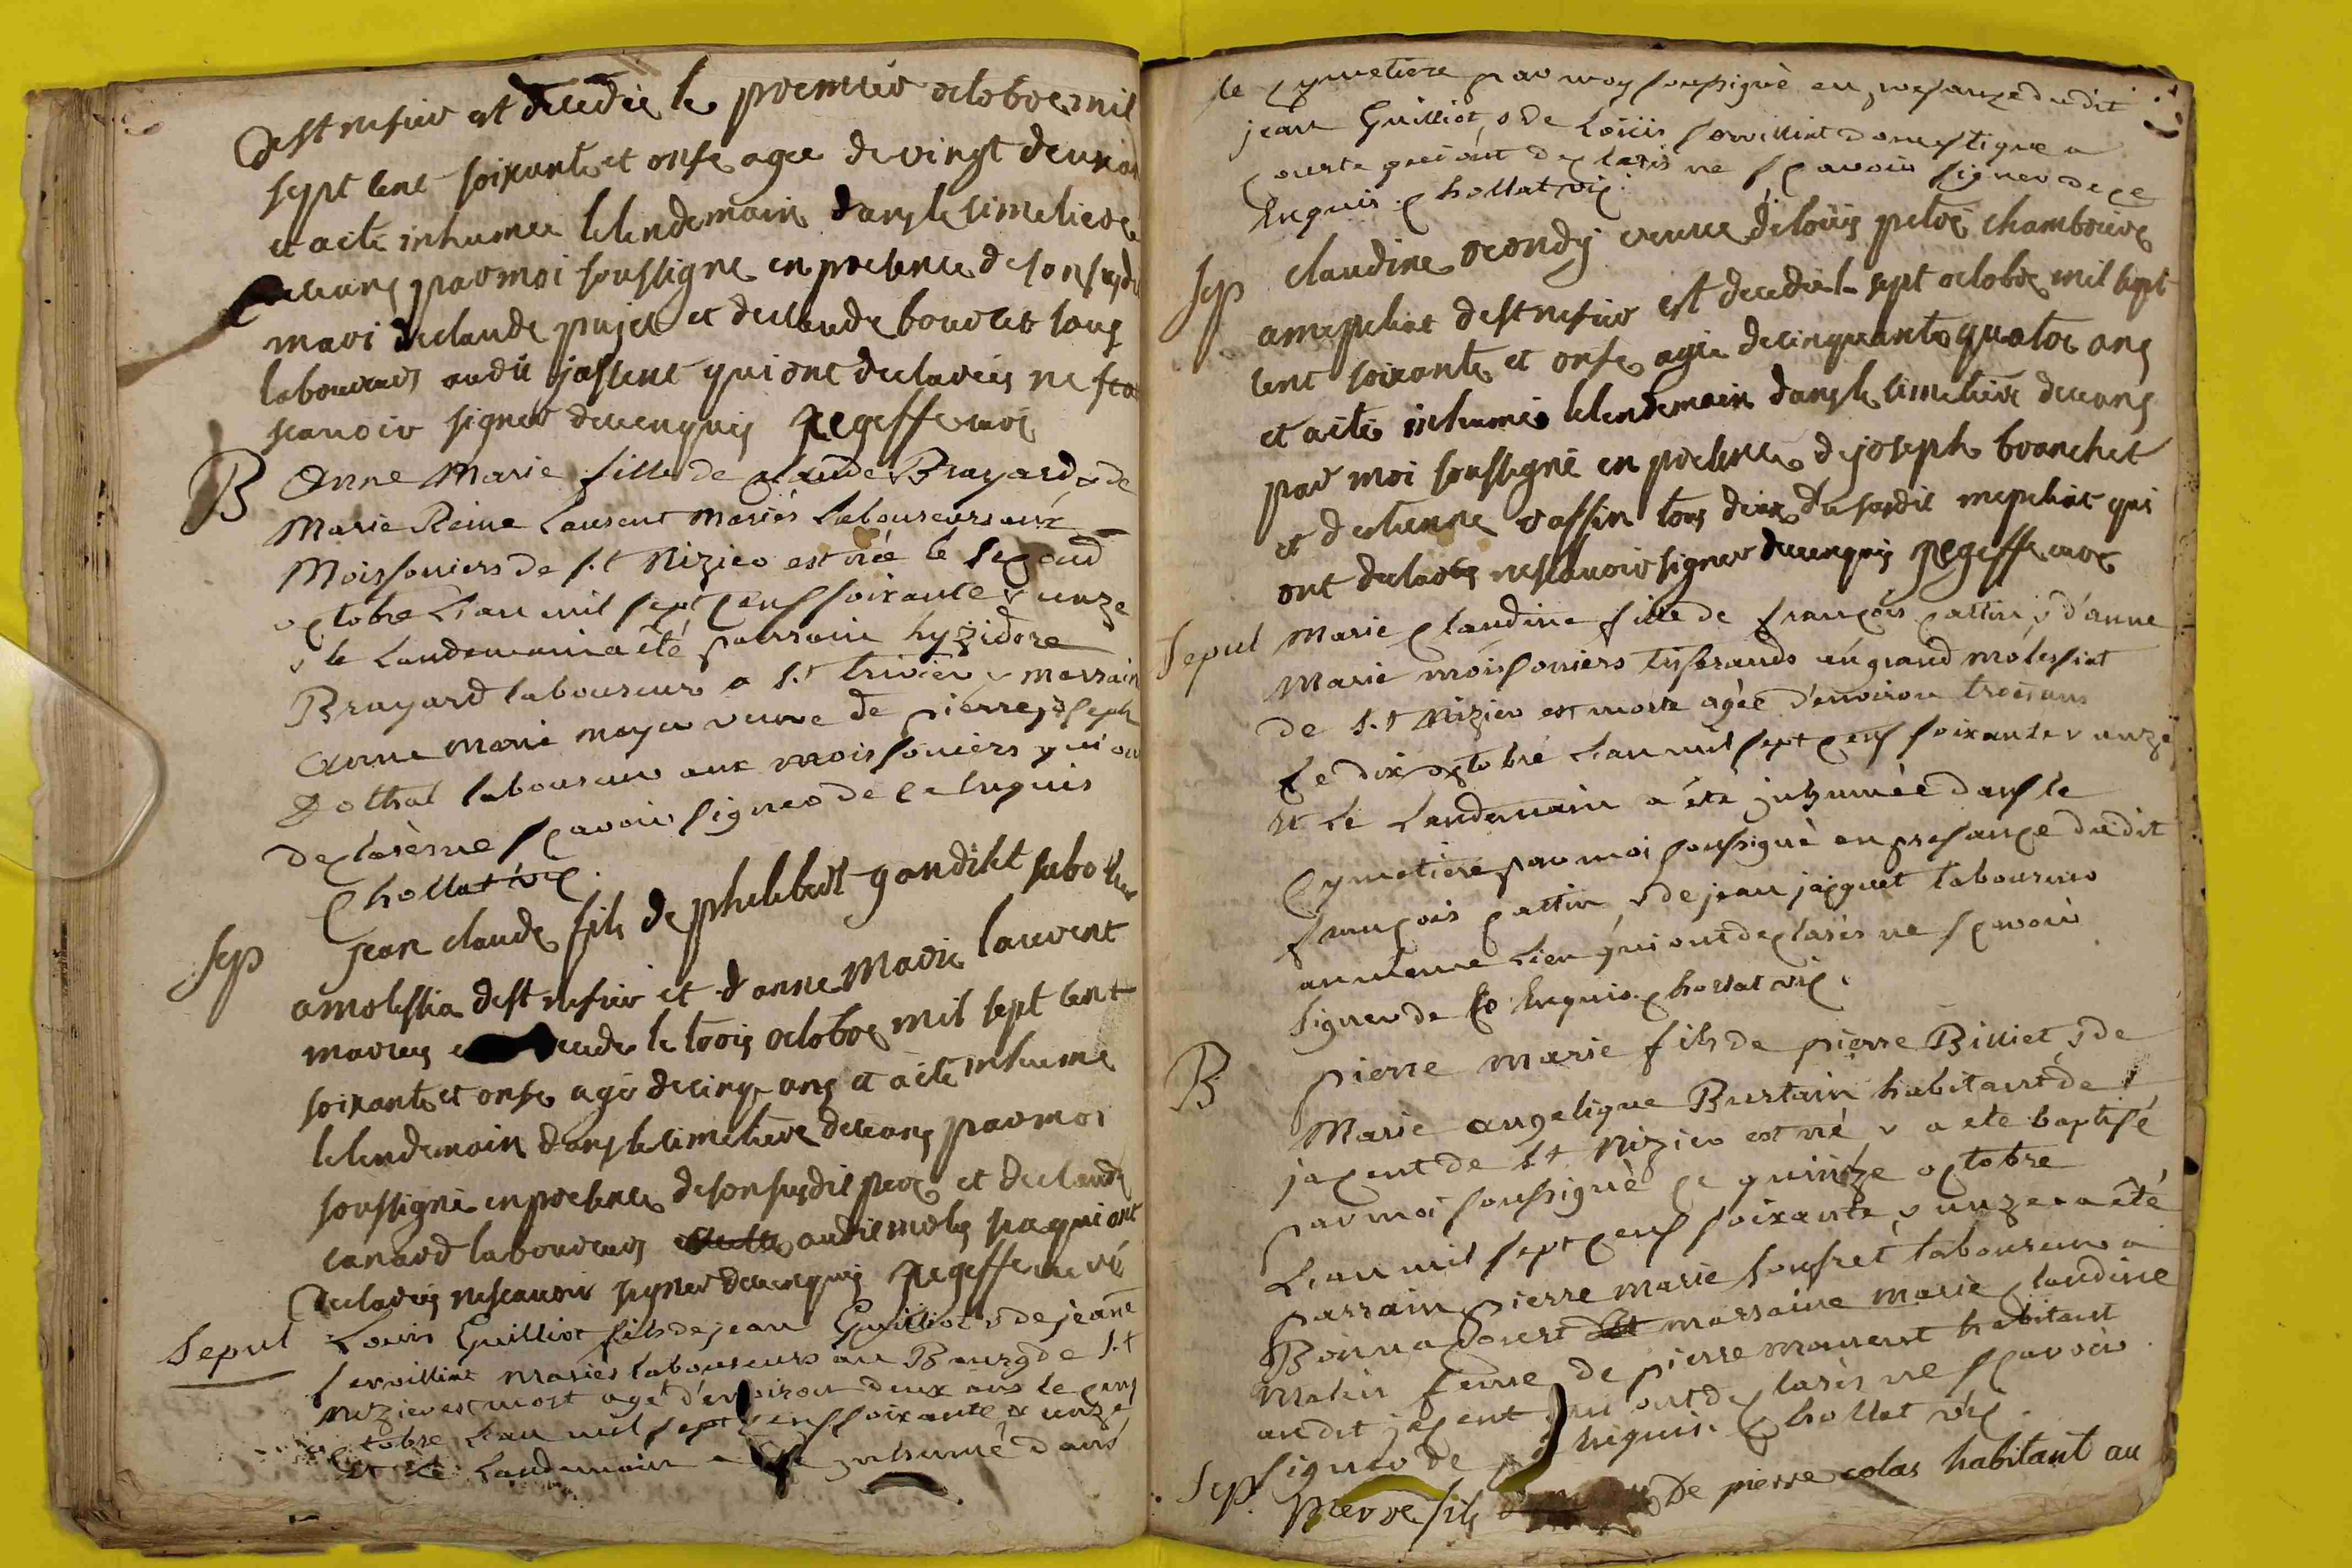 dest nesier et decedée le premier octobre mil
sept cent soixante et onse agee de vingt deux ans
et a eté inhumée lelendemain dans le simetiere
ceans par moi soussigné en presence de son susdit
mari declaude pujet et declaude bouvret tous
laboureurs audit jassent qui ont declarées ne
scavoir signer decenquis
B
Anne Marie fille de claude Brayard & de
Marie Reine Laurent Mariés Laboureurs aux
Moissoniers de S.t Nizier est née le segond
octobre L'an mil sept cens soixante & unze
& le Landemain a été parrain hyzidore
Brayard laboureur a S.t trivier & marrain
Anne Marie mayer veuve de pierre joseph
Dothal laboureur aux moissoniers qui on
declaré ne scavoir signer de ce Enquis
Chollat vic.
Sep
jean claude fils de philibert gandilet labo
a molessia dest nesier et d'anne Marie laurent
mariés decede le trois octobre mil sept cent
soixante et onse agé de cinq ans et a eté inhumé
lelendemain dans le simetiere deceans par moi
soussigné en presence de son susdit pere et declaude
canard laboureurs audit moles sia qui ont
declarés ne scavoir signer decenquis
Sepul
Louis Guilliot fils de jean Guilliot & de jeane
Servillint mariés laboureurs au Bourg de S.t
Nizier est mort agé d'environ deux ans le cinq
octobre L'an mil sept cens soixante & unze
Et Le Landemain a inhumé dans
le cymetiere par moy soussigné en presance dudit
jean Guilliot & de Loüis Servillint domestique a
courte qui ont declarés ne scavoir signer de ce
Enquis. Chollat vic.
Sep
claudine veuve de loüis petre
a mepliat dest nesier est decedée le sept octobre mil sept
cent soixante et onse agée de cinquante quatre ans
et a eté inhumée lelendemain dans le simetiere deceans
par moi soussigné en presence de joseph branchet
et d'estienne vassin tous deux du susdit mepliat qui
ont declarés ne scavoir signer decenquis
Sepul
Marie claudine fille de françois cattin & d'anne
Marie moissoniers tisserands au grand molessiat
de S.t Nizier est morte agée d'environ trois ans
Le dix octobre L'an mil sept cens soixante & unze
Et Le Landemain a été inhumée dans le
Cymetiere par moi soussigné en presance dudit
françois cattin & de jean jacquet laboureur
au meme Lieu qui ont declarés ne scavoir
signer de ce Enquis. Chollat vic.
B
pierre marie fils de pierre Billiet & de
Marie angelique Burtain habitant de
jacent de S.t Nizier est né & a eté baptisé
par moi soussigné ce quinze octobre
L'an mil sept cens soixante & unze a été
parrain pierre marie soufret laboureur a
Bonnavouert marraine marie claudine
Malin feme de pierre maurent habitant
audit jacent qui ont declarés ne scavoir
signer de Enquis. Chollat vic.
Sep.
pierre fils de pierre colas habitant au